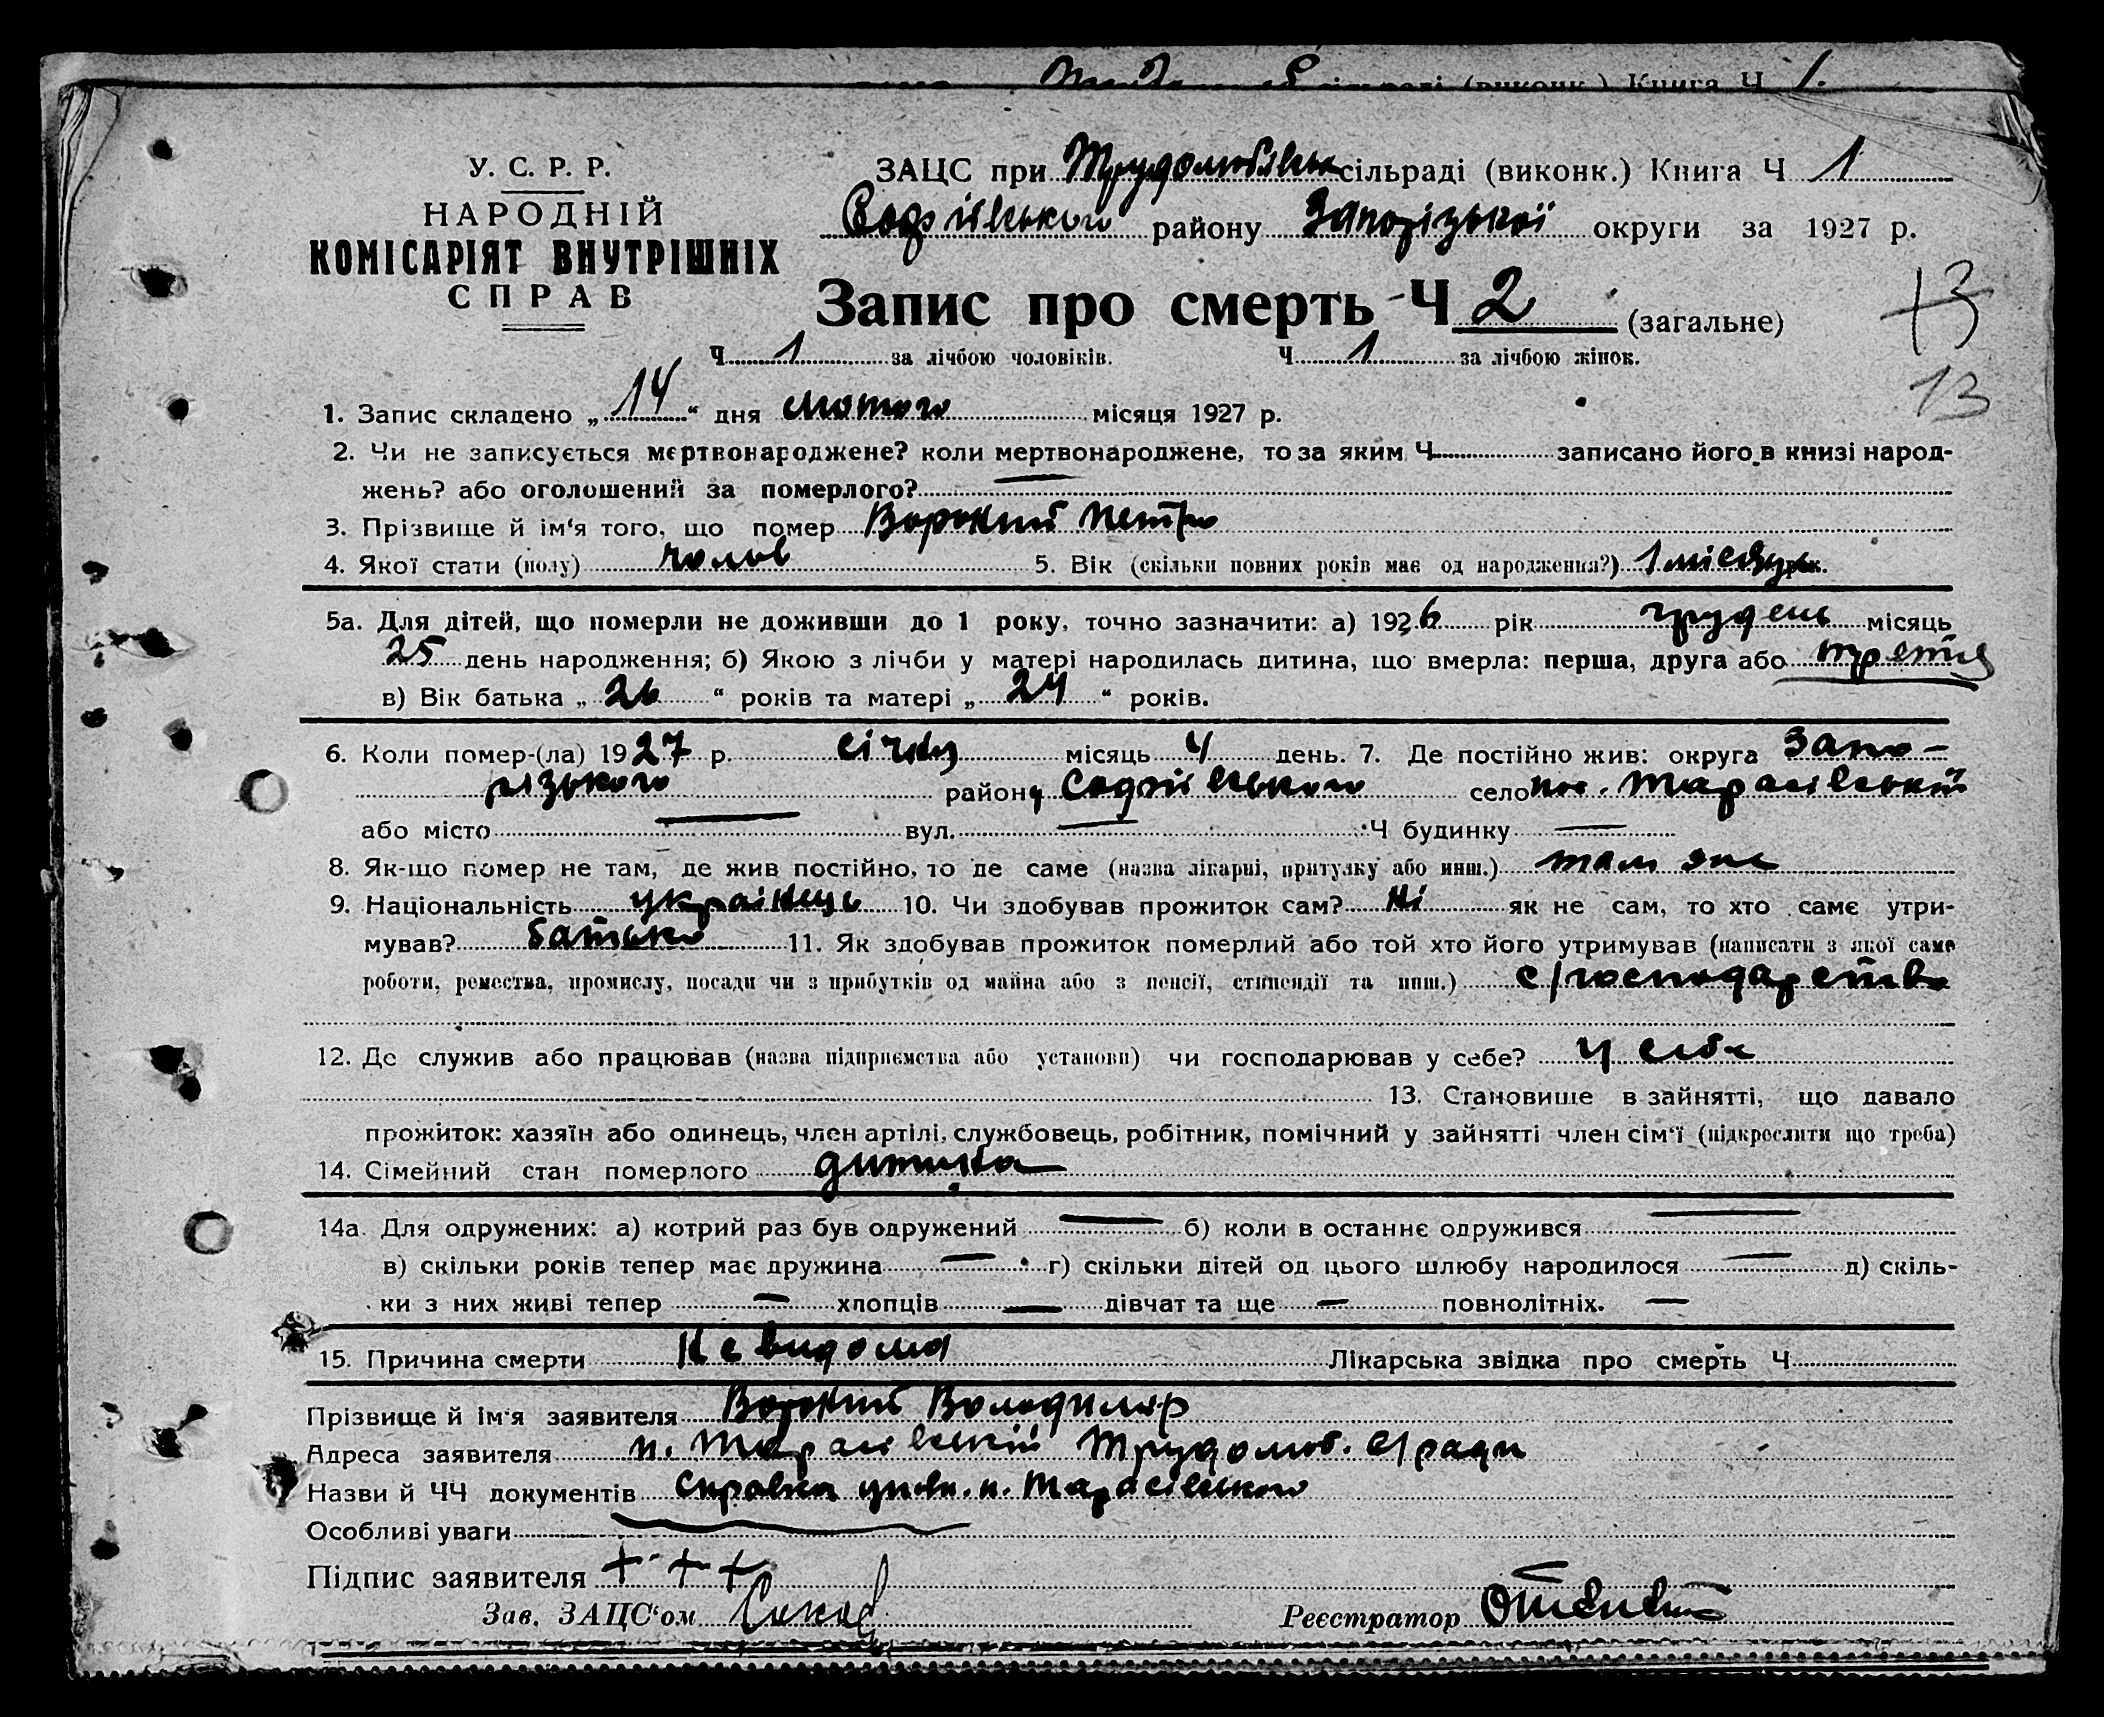 сільраді (виконк.) Книга Ч 1.
У. С. Р. Р.
НАРОДНІЙ
КОМІСАРІЯТ ВНУТРІШНІХ
СПРАВ
ЗАЦС при Трудолюбівськ сільраді (виконк.) Книга Ч 1
Софіївського району Запорізької округи за 1927 р.
Запис про смерть Ч 2 (загальне)
13
Ч 1 за лічбою чоловіків. Ч 1 за лічбою жінок.
13
1. Запис складено „ 14 “ дня лютого місяця 1927 р.
2. Чи не записується мертвонароджене? коли мертвонароджене, то за яким Ч записано його в книзі народ-
жень? або оголошений за померлого? —
3. Прізвище й ім‘я того, що помер Ворокий Петро
4. Якої стати (полу) чолов 5. Вік (скільки повних років має од народження?) 1 місяць рок.
5а. Для дітей, що померли не доживши до 1 року, точно зазначити: а) 1926 рік грудень місяць
25 день народження; б) Якою з лічби у матері народилась дитина, що вмерла: перша, друга або третя
в) Вік батька „ 26 “ років та матері „ 24 “ років.
6. Коли помер-(ла) 1927 р. січня місяць 4 день. 7. Де постійно жив: округа Запо-
різького району Софіївського село пос. Тарасівський
або місто — вул. — Ч будинку —
8. Як-що помер не там, де жив постійно, то де саме (назва лікарні, притулку або инш.) там же
9. Національність українець 10. Чи здобував прожиток сам? Ні як не сам, то хто саме утри-
мував? батько 11. Як здобував прожиток померлий або той хто його утримував (написати з якої саме
роботи, ремества, промислу, посади чи з прибутків од майна або з пенсії, стипендії та инш.) с/господарство
12. Де служив або працював (назва підприємства або установи) чи господарював у себе? у себе
13. Становище в зайнятті, що давало
прожиток: хазяїн або одинець, член артілі, службовець, робітник, помічний у зайнятті член сім‘ї (підкреслити що треба)
14. Сімейний стан померлого дитина
14а. Для одружених: а) котрий раз був одружений — б) коли в останнє одружився —
в) скільки років тепер має дружина — г) скільки дітей од цього шлюбу народилося — д) скіль-
ки з них живі тепер — хлопців — дівчат та ще — повнолітніх. —
15. Причина смерти Невидома Лікарська звідка про смерть Ч
Прізвище й ім‘я заявителя Ворокий Володимир
Адреса заявителя п. Тарасівський Трудолюб. с/ради
Назви й ЧЧ документів Справка упов. п. Тарасівського
Особливі уваги
Підпис заявителя + + +
Зав. ЗАЦС‘ом
Реєстратор